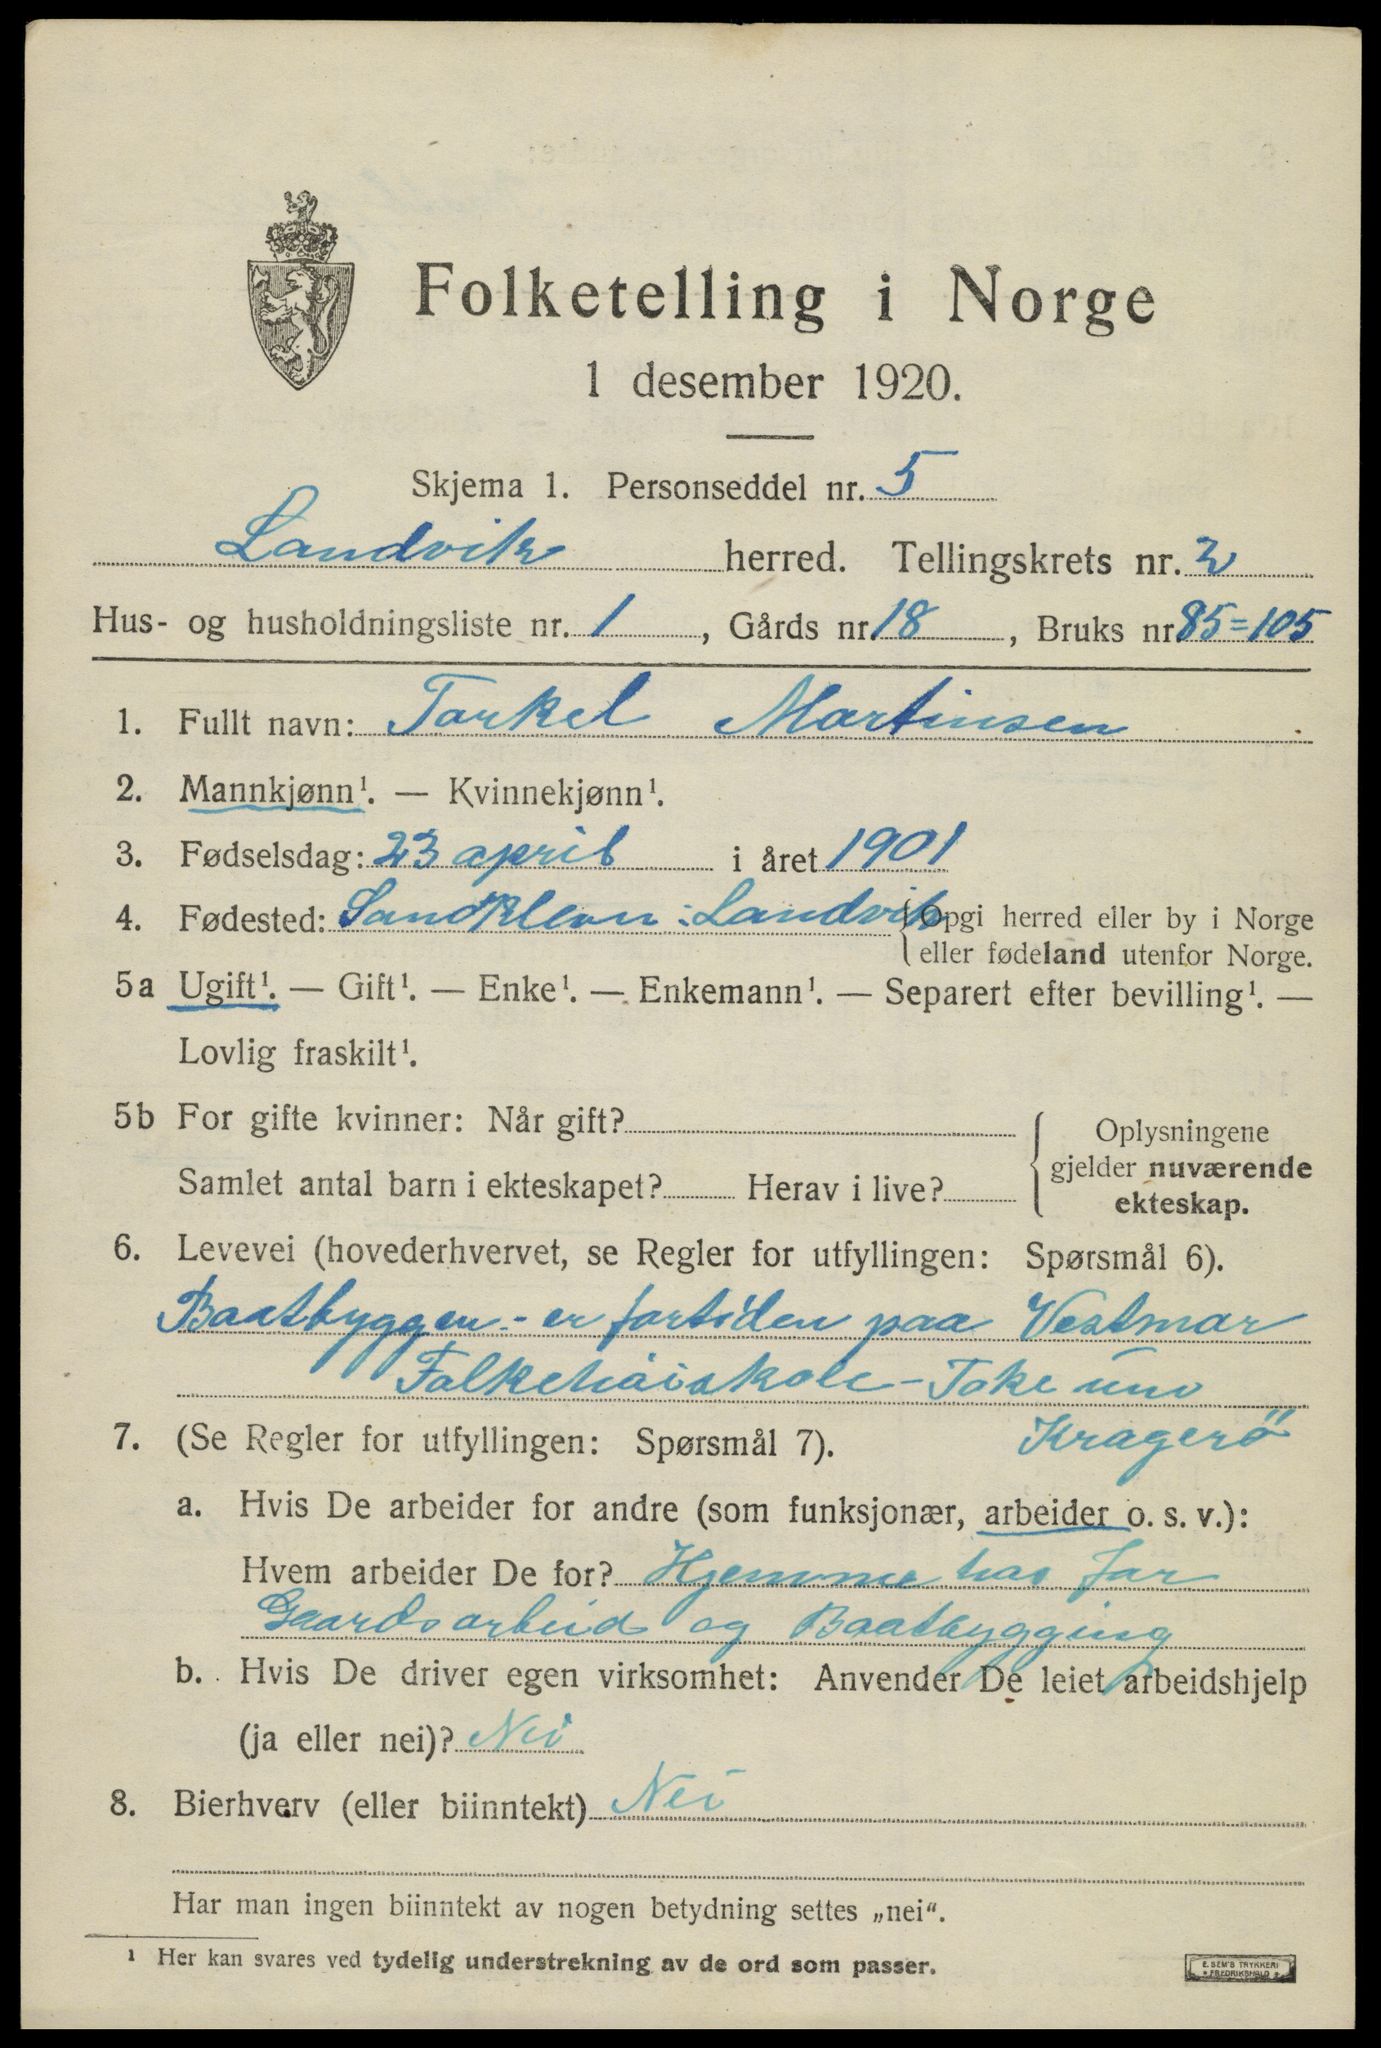 Folketelling i Norge
1 desember 1920.
Skjema 1. Personseddel nr. 5
Landvik herred. Tellingskrets nr. 2
Hus- og husholdningsliste nr. 1, Gårds nr. 18, Bruks nr. 85=105
1. Fullt navn: Tarkel Martinsen
2. Mannkjønn¹. — Kvinnekjønn¹.
3. Fødselsdag: 23 april i året 1901
4. Fødested: Sandkleiv: Landvik {Opgi herred eller by i Norge
eller fødeland utenfor Norge.
5a Ugift¹. — Gift¹. — Enke¹. — Enkemann¹. — Separert efter bevilling¹. —
Lovlig fraskilt¹.
5b For gifte kvinner: Når gift?
Samlet antal barn i ekteskapet? Herav i live?
Oplysningene
gjelder nuværende
ekteskap.
6. Levevei (hovederhvervet, se Regler for utfyllingen: Spørsmål 6).
Baatbyggeri - er fortiden paa Vestmar
Folkehöiskole - Toke
Kragerö
7. (Se Regler for utfyllingen: Spørsmål 7).
a. Hvis De arbeider for andre (som funksjonær, arbeider o. s. v.):
Hvem arbeider De for? Hjemme hos far
Gaardsarbeid og Baatbygging
b. Hvis De driver egen virksomhet: Anvender De leiet arbeidshjelp
(ja eller nei)? Nei
8. Bierhverv (eller biinntekt) Nei
Har man ingen biinntekt av nogen betydning settes „nei“.
¹ Her kan svares ved tydelig understrekning av de ord som passer.
E. SEM'S TRYKKERI
FREDRIKSHALD